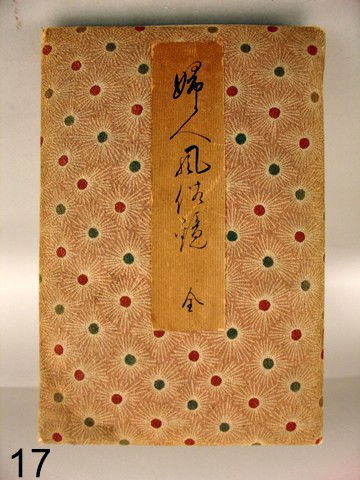 婦人風俗鏡
全
17